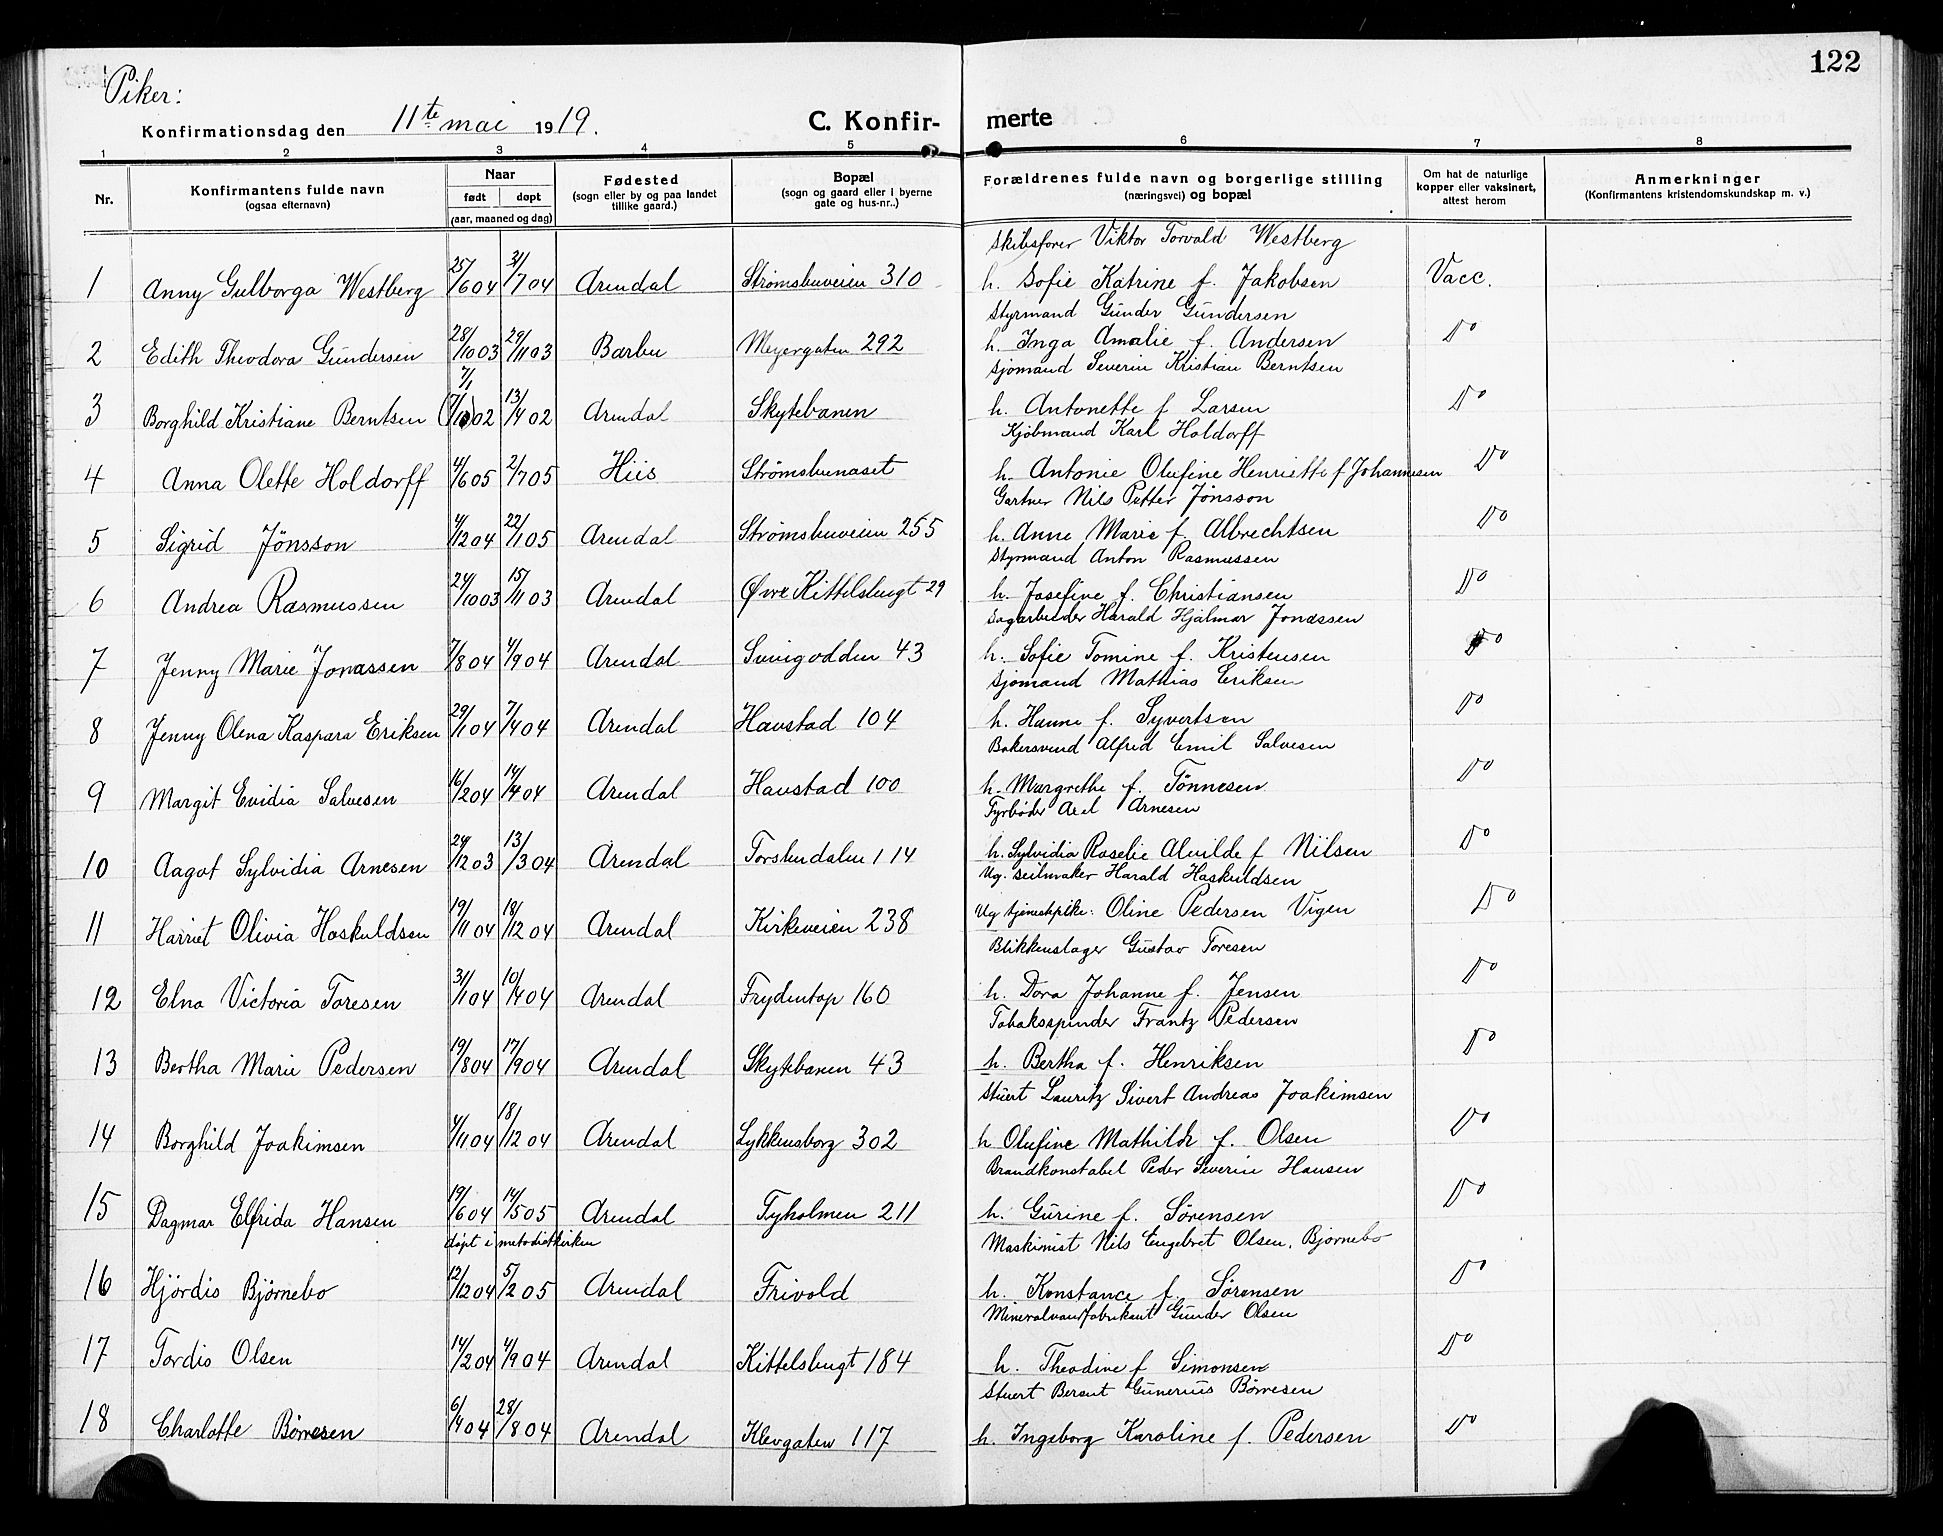 122
Piker:
Konfirmationsdag den 11te mai 1919.
C. Konfir- merte
1 2 3 4 5 6 7 8
Nr.
Konfirmantens fulde navn
(ogsaa efternavn)
Naar
født døpt
(aar, maaned og dag)
Fødested
(sogn eller by og paa landet
tillike gaard.)
Bopæl
(sogn og gaard eller i byerne
gate og hus-nr..)
Forældrenes fulde navn og borgerlige stilling
(næringsvei) og bopæl
Om hat de naturlige
kopper eller vaksinert,
attest herom
Anmerkninger
(Konfirmantens kristendomskundskap m. v.)
Skibsfører Viktor Torvald Westberg
1 Anny Gulborga Westberg 25/6 04 31/7 04 Arendal Strømsbuveien 310 h. Sofie Katrine f. Jakobsen Vacc.
Styrmand Gunder Gundersen
2 Edith Theodora Gundersen 28/10 03 29/11 03 Barbu Meyergaten 292 h. Inga Amalie f. Andersen Do
Sjømand Severin Kristian Berntsen
7/1
3 Borghild Kristiane Berntsen 02 13/4 02 Arendal Skytebanen h. Antonette f. Larsen Do
Kjøbmand Karl Holdorff
4 Anna Olette Holdorff 4/6 05 2/7 05 Hiis Strømsbunæset h. Antonie Olufine Henriette f. Johannesen Do
Gartner Nils Petter Jönsson
5 Sigrid Jönsson 4/12 04 22/1 05 Arendal Strømsbuveien 255 h. Anne Marie f. Albrechtsen Do
Styrmand Anton Rasmussen
6 Andrea Rasmussen 24/10 03 15/11 03 Arendal Øvre Kittelsbugt 29 h. Josefine f. Christiansen Do
Sagarbeider Harald Hjalmar Jonassen
7 Jenny Marie Jonassen 7/8 04 4/9 04 Arendal Svinodden 43 h. Sofie Tomine f. Kristensen Do
Sjømand Mathias Eriksen
8 Jenny Olena Kaspara Eriksen 29/1 04 7/4 04 Arendal Havstad 104 h. Hanne f. Syvertsen Do
Bakersvend Alfred Emil Salvesen
9 Margit Evidia Salvesen 16/2 04 14/4 04 Arendal Havstad 100 h. Margrethe f. Tönnesen Do
Fyrbøder Axel Arnesen
10 Aagot Sylvidia Arnesen 24/12 03 13/3 04 Arendal Torskedalen 114 h. Sylvidia Roselie Alvilde f. Nilsen Do
Ug. seilmaker Harald Haskuldsen
11 Harriet Olivia Haskuldsen 19/11 04 18/12 04 Arendal Kirkeveien 238 Ug tjenestepike: Oline Pedersen Vigen Do
Blikkenslager Gustav Toresen
12 Elna Victoria Toresen 31/1 04 10/4 04 Arendal Frydentop 160 h. Dora Johanne f. Jensen Do
Tobakspinder Frantz Pedersen
13 Bertha Marie Pedersen 19/8 04 17/9 04 Arendal Skytebanen 43 h. Bertha f. Henriksen Do
Stuert Lauritz Sivert Andreas Joakimsen
14 Borghild Joakimsen 4/11 04 18/12 04 Arendal Lykkensborg 302 h Olufine Mathilde f. Olsen Do
Brandkonstabel Peder Severin Hansen
15 Dagmar Elfrida Hansen 19/6 04 14/5 05 Arendal Tyholmen 211 h. Gurine f. Sørensen Do
døpt i metodistkirken
Maskinist Nils Engebret Olsen, Bjørnebo
16 Hjördis Bjørnebo 12/12 04 5/2 05 Arendal Frivold h. Konstance f. Sørensen Do
Mineralvandfabrikant Gunder Olsen
17 Tordis Olsen 14/2 04 4/9 04 Arendal Kittelsbugt 184 h. Theodine f. Simonsen Do
Stuert Berent Gunerius Børresen
18 Charlotte Børresen 6/4 04 28/8 04 Arendal Klevgaten 117 h. Ingeborg Karoline f. Pedersen Do